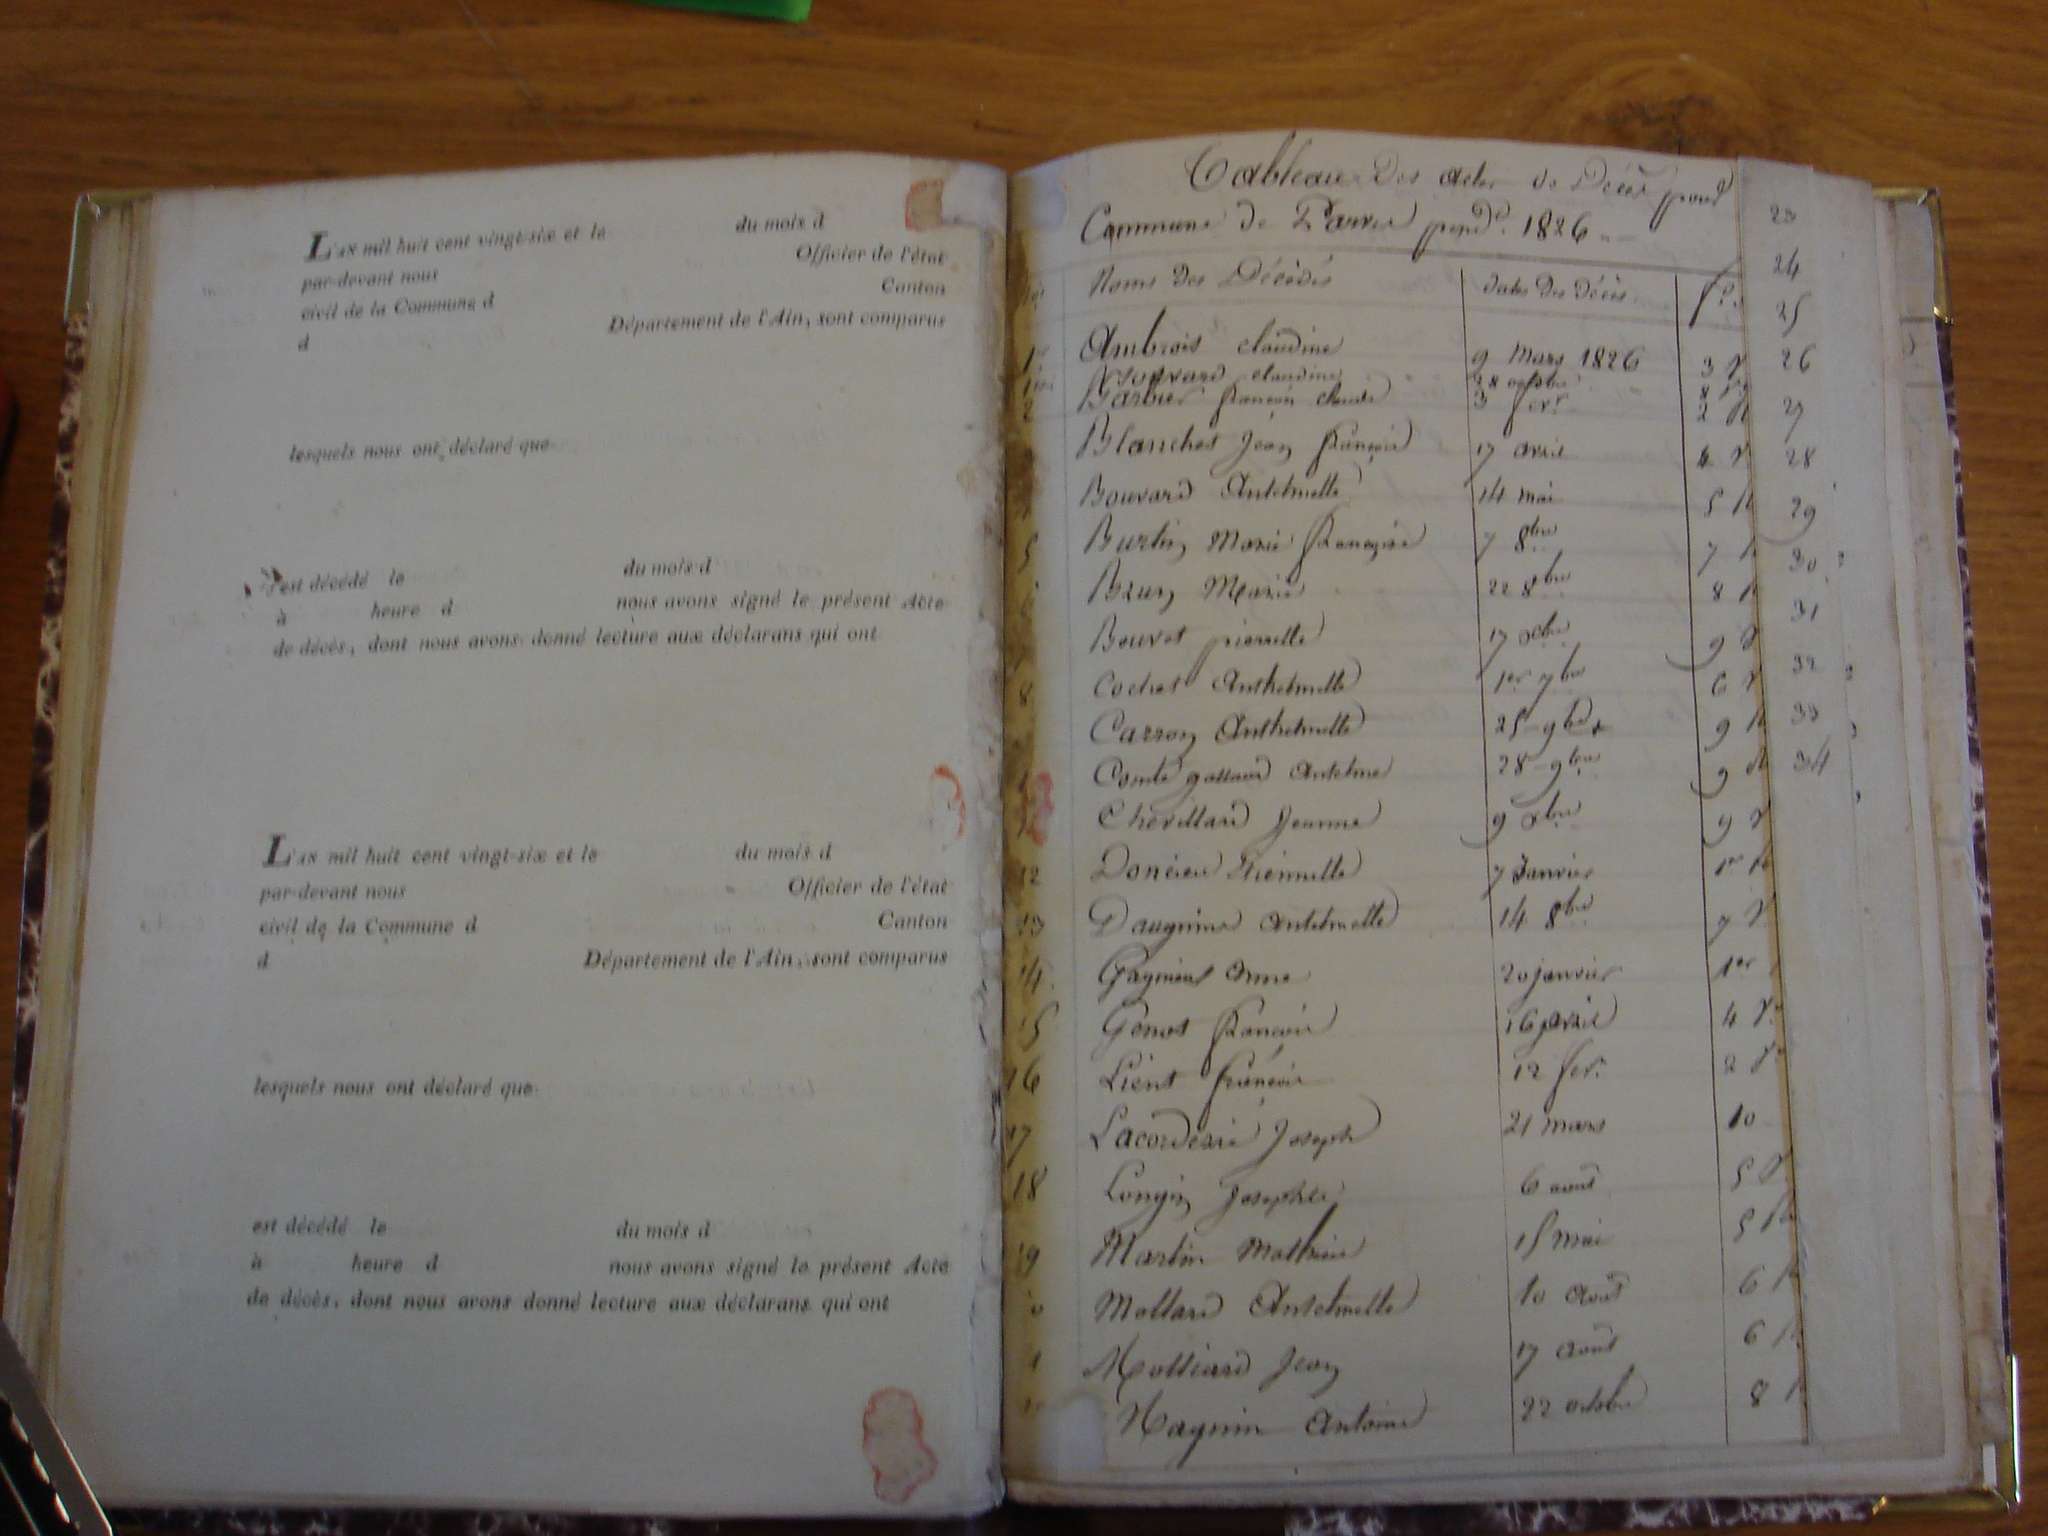 L'an mil huit cent vingt-six et le du mois d
par-devant nous Officier de l'état
civil de la Commune d Canton
d Département de l'Ain, sont comparus
lesquels nous ont déclaré que
est décédé le du mois d
à heure d nous avons signé le présent Acte
de décès, dont nous avons donné lecture aux déclarans qui ont
L'an mil huit cent vingt-six et le du mois d
par-devant nous Officier de l'état
civil de la Commune d Canton
d Département de l'Ain, sont comparus
lesquels nous ont déclaré que
est décédé le du mois d
à heure d nous avons signé le présent Acte
de décès, dont nous avons donné lecture aux déclarans qui ont
Tableau des actes de Décès pour
Commune de Parves pend.t 1826
Noms des Décédés dates des décès
1er Ambrois claudine 9 Mars 1826 3 V
Bouvard claudine 28 octobre 8
2 Barbier françois claude 3 fevr. 2 R
Blanchet Jean françois 17 avril 4 V
Bouvard Antelmette 14 mai 5 R
5 Burtin Marie françoise 7 8bre 7 R
Brun Marie 22 8bre 8 R
Bouvet pierrette 17 xbre 9 V
8 Cochet Anthelmette 1er 7bre 6 V
Carron Anthelmette 25 9bre 9 R
Comte Antelme 28 9bre 9
Chevillard Jeanne 9 xbre 9 V
12 Etiennette 7 Janvier 1er R
13 Antelmette 14 8bre 7 V
14 Anne 20 janvier 1er
15 Genot françois 16 avril 4 V
16 Lient françois 12 fevr. 2
17 Lacordaire Joseph 21 mars 10
18 Longin Josephte 6 aout 5 V
19 Martin Mathieu 15 mai 5 R
Mollard Antelmette 10 Août 6 R
Molliard Jean 17 Août 6
Magnin Antoine 22 octobre 8
23
24
25
26
27
28
29
30
31
32
33
34